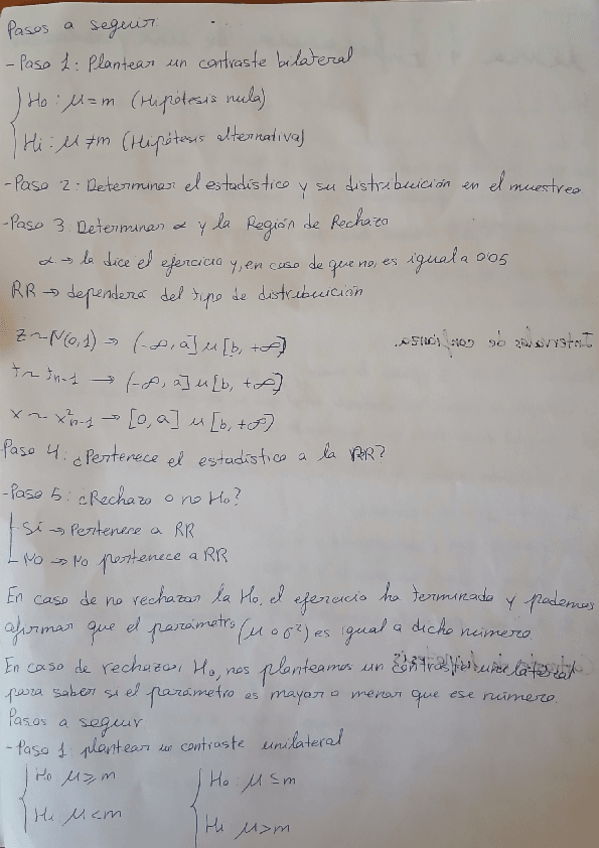 Pasos a seguir
- Paso 1: Plantear un contraste bilateral
H0: μ = m (Hipótesis nula)
Hi: μ ≠ m (Hipótesis alternativa)
- Paso 2: Determinar el estadístico y su distribuición en el muestreo
- Paso 3: Determinar α y la Región de Rechazo
α → la dice el ejercicio y, en caso de que no, es igual a 0'05
RR → dependerá del tipo de distribuición
Z ~ N(0,1) → (-∞, a] u [b, +∞)
t ~ tn-1 → (-∞, a] u [b, +∞)
x ~ x²n-1 → [0, a] u [b, +∞)
Intervalos de confianza.
Paso 4: ¿Pertenece el estadístico a la RR?
- Paso 5: ¿Rechazo o no H0?
Sí → Pertenece a RR
No → No pertenece a RR
En caso de no rechazar la H0, el ejercicio ha terminado y podemos
afirmar que el parámetro (μ o σ²) es igual a dicho número.
En caso de rechazar H0, nos planteamos un contraste unilateral
para saber si el parámetro es mayor o menor que ese número.
Pasos a seguir
- Paso 1: plantear un contraste unilateral
H0 μ ≥ m H0: μ ≤ m
Hi: μ < m Hi μ > m